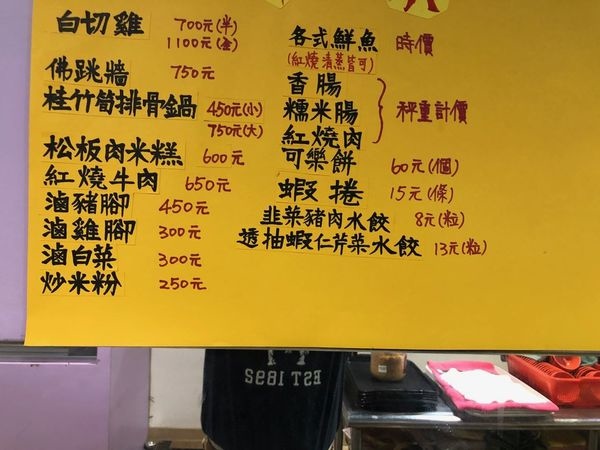 白切雞 700元(半)
1100元(全)
佛跳牆 750元
桂竹筍排骨鍋 450元(小)
750元(大)
松板肉米糕 600元
紅燒牛肉 650元
滷豬腳 450元
滷雞腳 300元
滷白菜 300元
炒米粉 250元
各式鮮魚 時價
(紅燒清蒸皆可)
香腸
糯米腸 秤重計價
紅燒肉
可樂餅 60元(個)
蝦捲 15元(條)
韭菜豬肉水餃 8元(粒)
透抽蝦仁芹菜水餃 13元(粒)
EST 1892